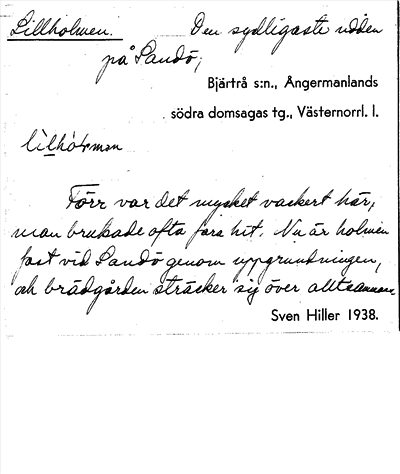 Lillholmen. Den sydligaste udden
på Sandö;
Bjärtrå s:n., Ångermanlands
södra domsagas tg., Västernorrl. l.
Förr var det mycket vackert här,
man brukade ofta fara hit. Nu är holmen
fast vid Sandö genom uppgrundningen,
och brädgården sträcker sig över alltsammans
Sven Hiller 1938.